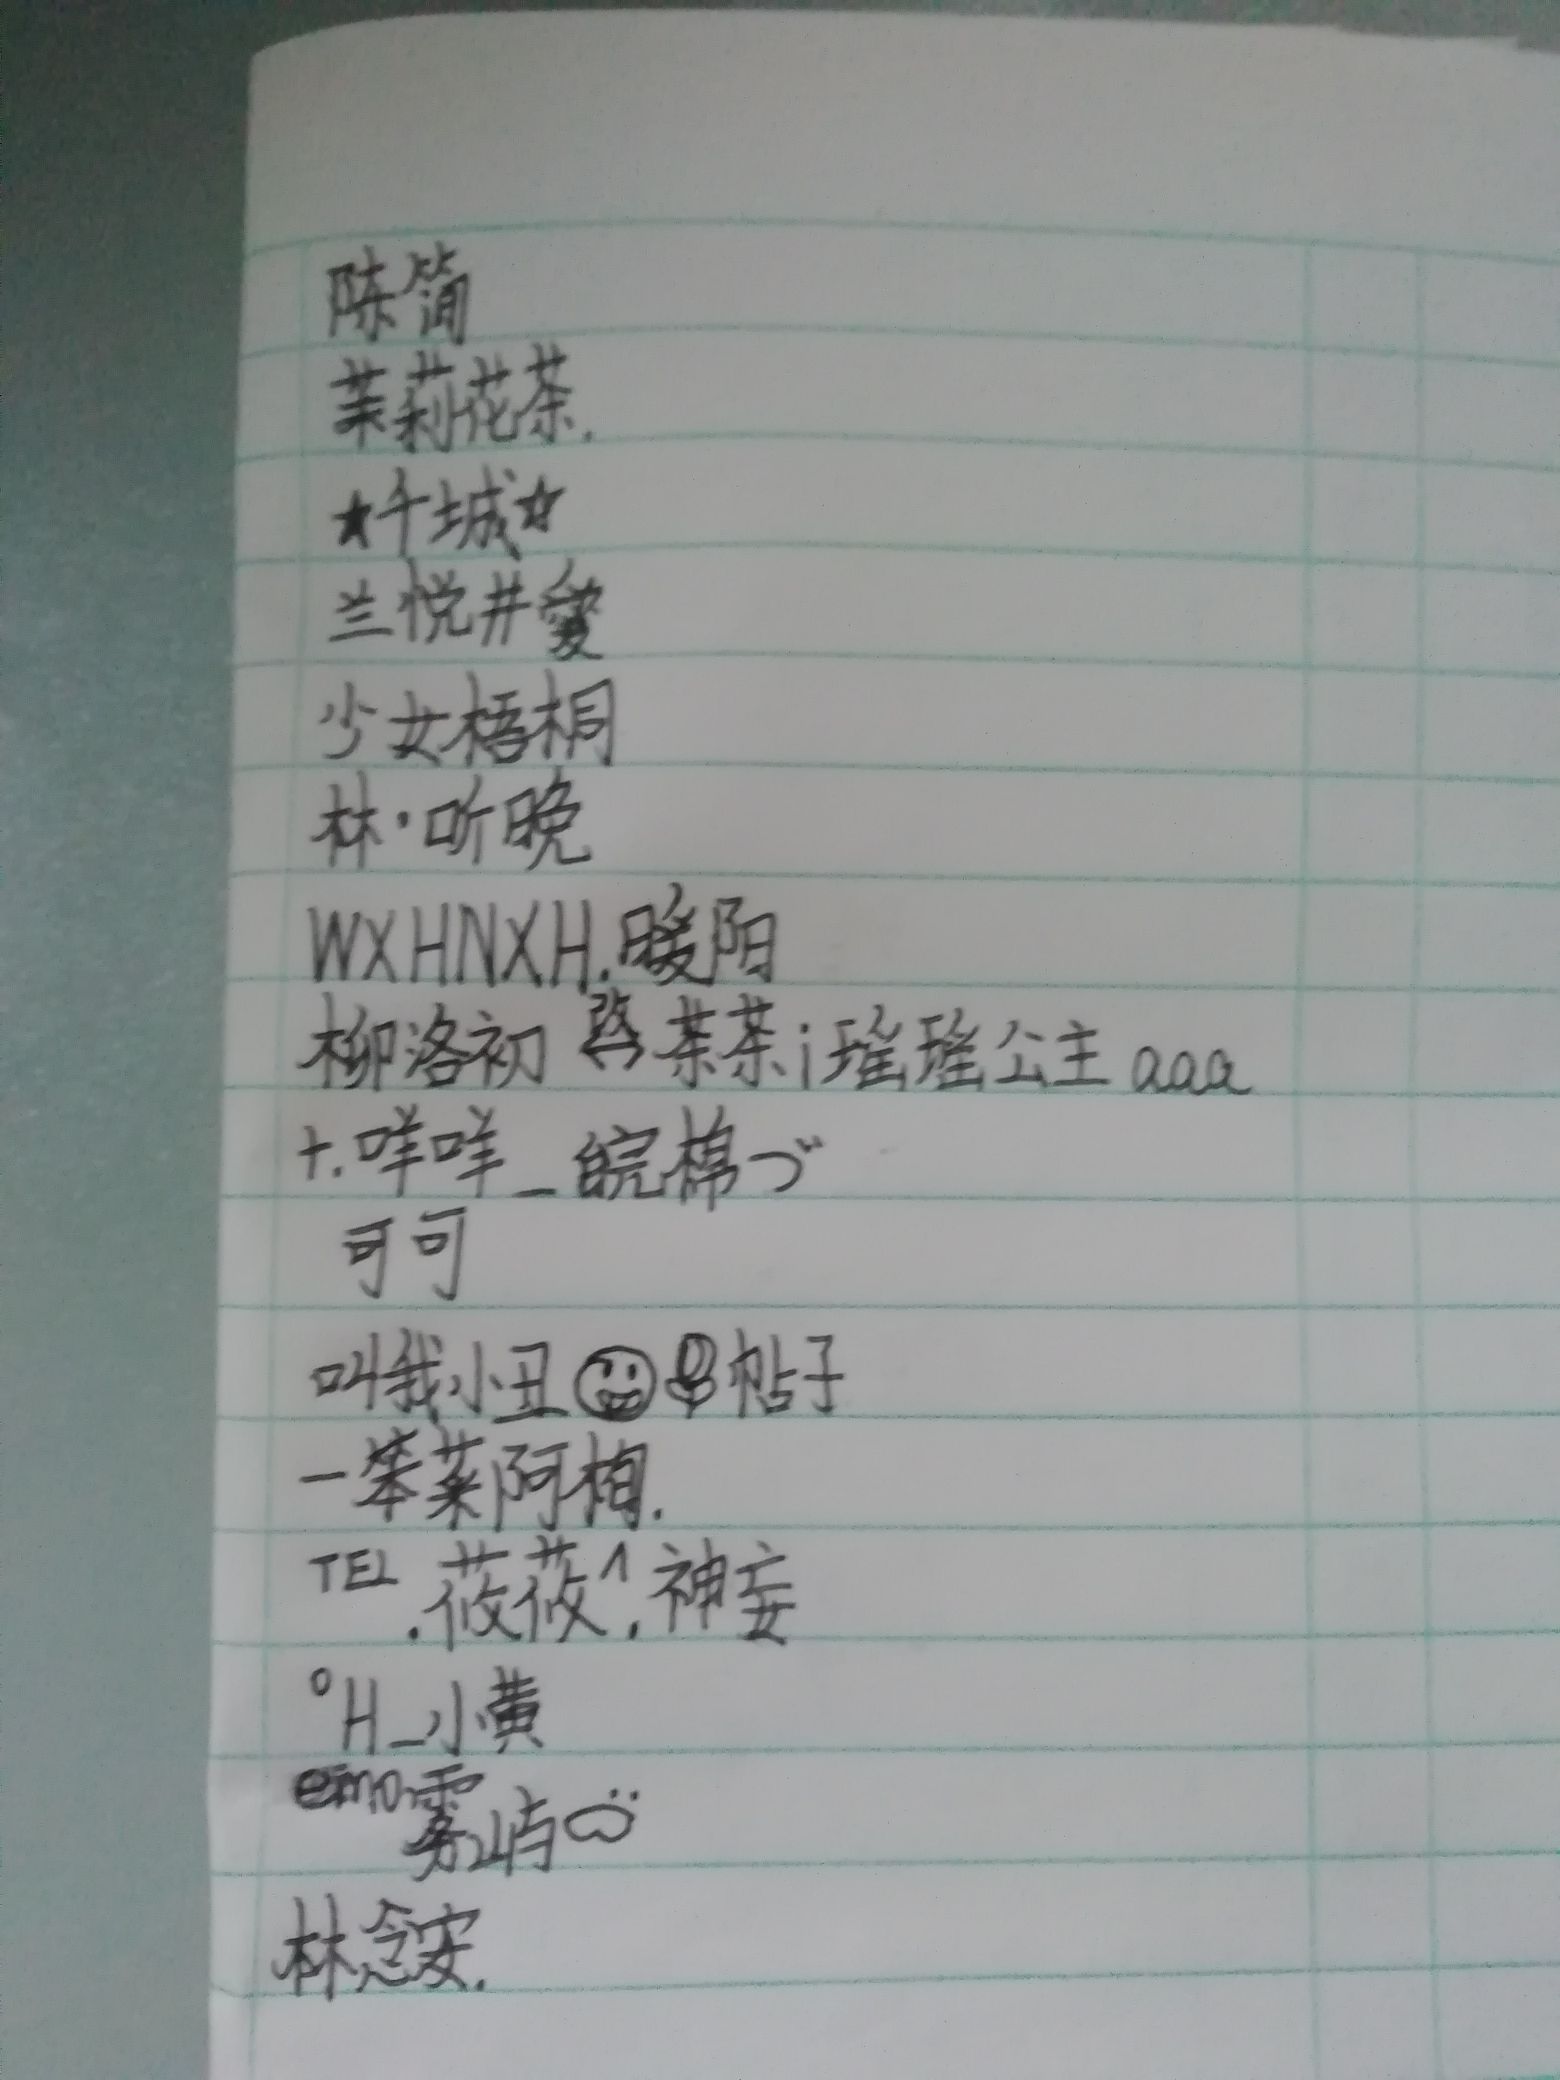 陈简
茉莉花茶.
★千城☆
兰悦井愛
少女梧桐
林·听晚
WXHNXH.暖阳
柳洛初 茶茶i瑶瑶公主aaa
t.咩咩_皖棉づ
可可
叫我小丑 帖子
一笨菜阿栯.
TEL.莜莜^.神妄
°H_小黄
emo雾屿
林念安.